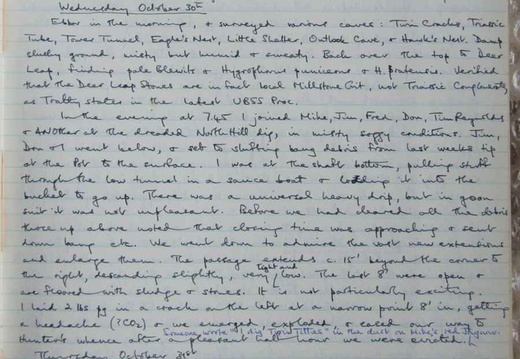 Wednesday October 30th
Ebbor in the morning, & surveyed various caves: Twin Cracks, Triassic
Tube, Tower Tunnel, Eagle's Nest, Little Shelter, Outlook Cave, & Hawk's Nest. Damp
clucky ground, misty but humid & sweaty. Back over the top to Deer
Leap, finding pale Blewits & Hygrophorus puniceus & H. pratensis. Verified
that the Deer Leap Stones are in fact local Millstone Grit, not Triassic Conglomerate
as Tratley states in the latest UBSS Proc.
In the evening at 7.45 I joined Mike, Jim, Fred, Don, Tim Reynolds
& Another at the dreaded North Hill dig, in misty soggy conditions. Jim,
Don & I went below, & set to shifting bang debris from last weeks tip
at the Pot to the surface. I was at the shaft bottom, pulling stuff
through the low tunnel in a sauce boat & loading it into the
bucket to go up. There was a universal heavy drip, but in goon
suit it was not unpleasant. Before we had cleared all the debris
those up above noted that closing time was approaching & sent
down bang etc. We went down to admire the vast new extensions
and enlarge them. The passage extends c. 15' beyond the corner to
the right, descending slightly, very tight and low. The last 8' were open &
are floored with sludge & stones. It is not particularly exciting.
I laid 2 lbs pg in a crack on the left at a narrow point 8' in, getting
a headache (?CO2) & we emerged, exploded, & raced our way to
Someone wrote "I dig Tjorn Titties" in the dirt on Mike's red
Hunters whence after a pleasant half hour we were evicted.
Thursday October 31st